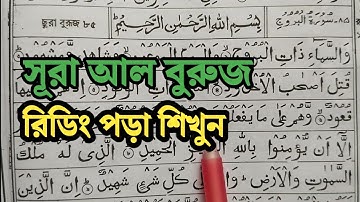 ছুরা বুরূজ ৮৫
بِسْمِ اللّٰهِ الرَّحْمٰنِ الرَّحِيْمِ
٨٥- سُوْرَةُ الْبُرُوْجِ
وَالسَّمَآءِ ذَاتِ الْبُرُوْجِ
সূরা আল বুরুজ
قُتِلَ اَصْحٰبُ الْاُخْدُوْدِ
রিডিং পড়া শিখুন
قُعُوْدٌ وَّهُمْ عَلٰى مَا يَفْعَلُوْنَ
اِلَّاۤ اَنْ يُّؤْمِنُوْا بِاللّٰهِ الْعَزِيْزِ الْحَمِيْدِ الَّذِىْ لَهٗ مُلْكُ
السَّمٰوٰتِ وَالْاَرْضِ وَاللّٰهُ عَلٰى كُلِّ شَىْءٍ شَهِيْدٌ اِنَّ الَّذِيْنَ